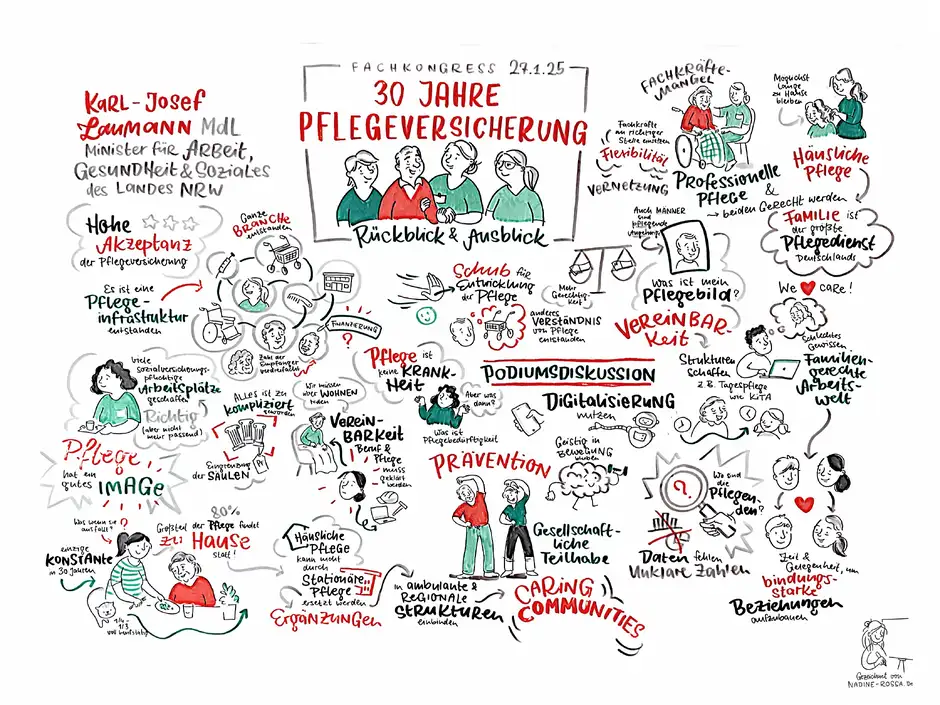 FACHKONGRESS 27.1.25
30 JAHRE
PFLEGEVERSICHERUNG
Rückblick & Ausblick
KARL-JOSEF
Laumann MdL
Minister für ARBEIT,
GESUNDHEIT & SOZIALES
des LANDES NRW
HOHE
AKZEPTANZ
der Pflegeversicherung
Es ist eine
PFLEGE-
infrastruktur
entstanden
Ganze
BRANCHE
entstanden
Zahl der
Empfänger
FINANZIERUNG
?
Viele
sozialversicherungs-
pflichtige
Arbeitsplätze
geschaffen
Richtig
(aber nicht
mehr passend)
Pflege
hat ein
gutes IMAGE
ALLES ist zu
kompliziert
geworden
Eingrenzung
der SÄULEN
Wir müssen
über WOHNEN
reden
VEREIN-
BARKEIT
Beruf &
Pflege
muss
geklärt
werden
Was wenn sie
ausfällt?
?
einzige
KONSTANTE
in 30 Jahren
80%
Großteil der Pflege findet
zu HAUSE
statt!
1/4 -
1/3
Häusliche
PFLEGE
kann nicht
durch
Stationäre
Pflege
ersetzt werden
ERGÄNZUNGEN
in ambulante &
REGIONALE
STRUKTUREN
einbinden
Schub für
Entwicklung
der Pflege
anderes
VERSTÄNDNIS
von Pflege
entstanden
Pflege ist
keine KRANK-
HEIT
Aber was
dann?
Was ist
Pflegebedürftigkeit
PODIUMSDISKUSSION
DIGITALISIERUNG
nutzen
PRÄVENTION
Geistig in
BEWEGUNG
bleiben
Gesellschaft-
liche
Teilhabe
CARING
COMMUNITIES
FACHKRÄFTE-
MANGEL
Fachkräfte
an richtiger
Stelle einsetzen
Flexibilität
VERNETZUNG
Professionelle
Pflege &
Möglichst
Lange
zu Hause
bleiben
Häusliche
Pflege
→ beiden Gerecht werden
FAMILIE ist
der größte
Pflegedienst
Deutschlands
Mehr
Gerechtig-
keit
Auch MÄNNER
sind
pflegende
Angehörige
Was ist mein
Pflegebild?
VEREINBAR-
KEIT
We ♥ care!
Schlechtes
Gewissen
Strukturen
schaffen
z.B. Tagespflege
wie KITA
Familien-
gerechte
Arbeits-
welt
?
Wo sind
die
Pflegen-
den?
Daten fehlen
Unklare Zahlen
Zeit &
Gelegenheit, um
bindungs-
starke
Beziehungen
aufzubauen
Gezeichnet von
NADINE-ROSSA.De